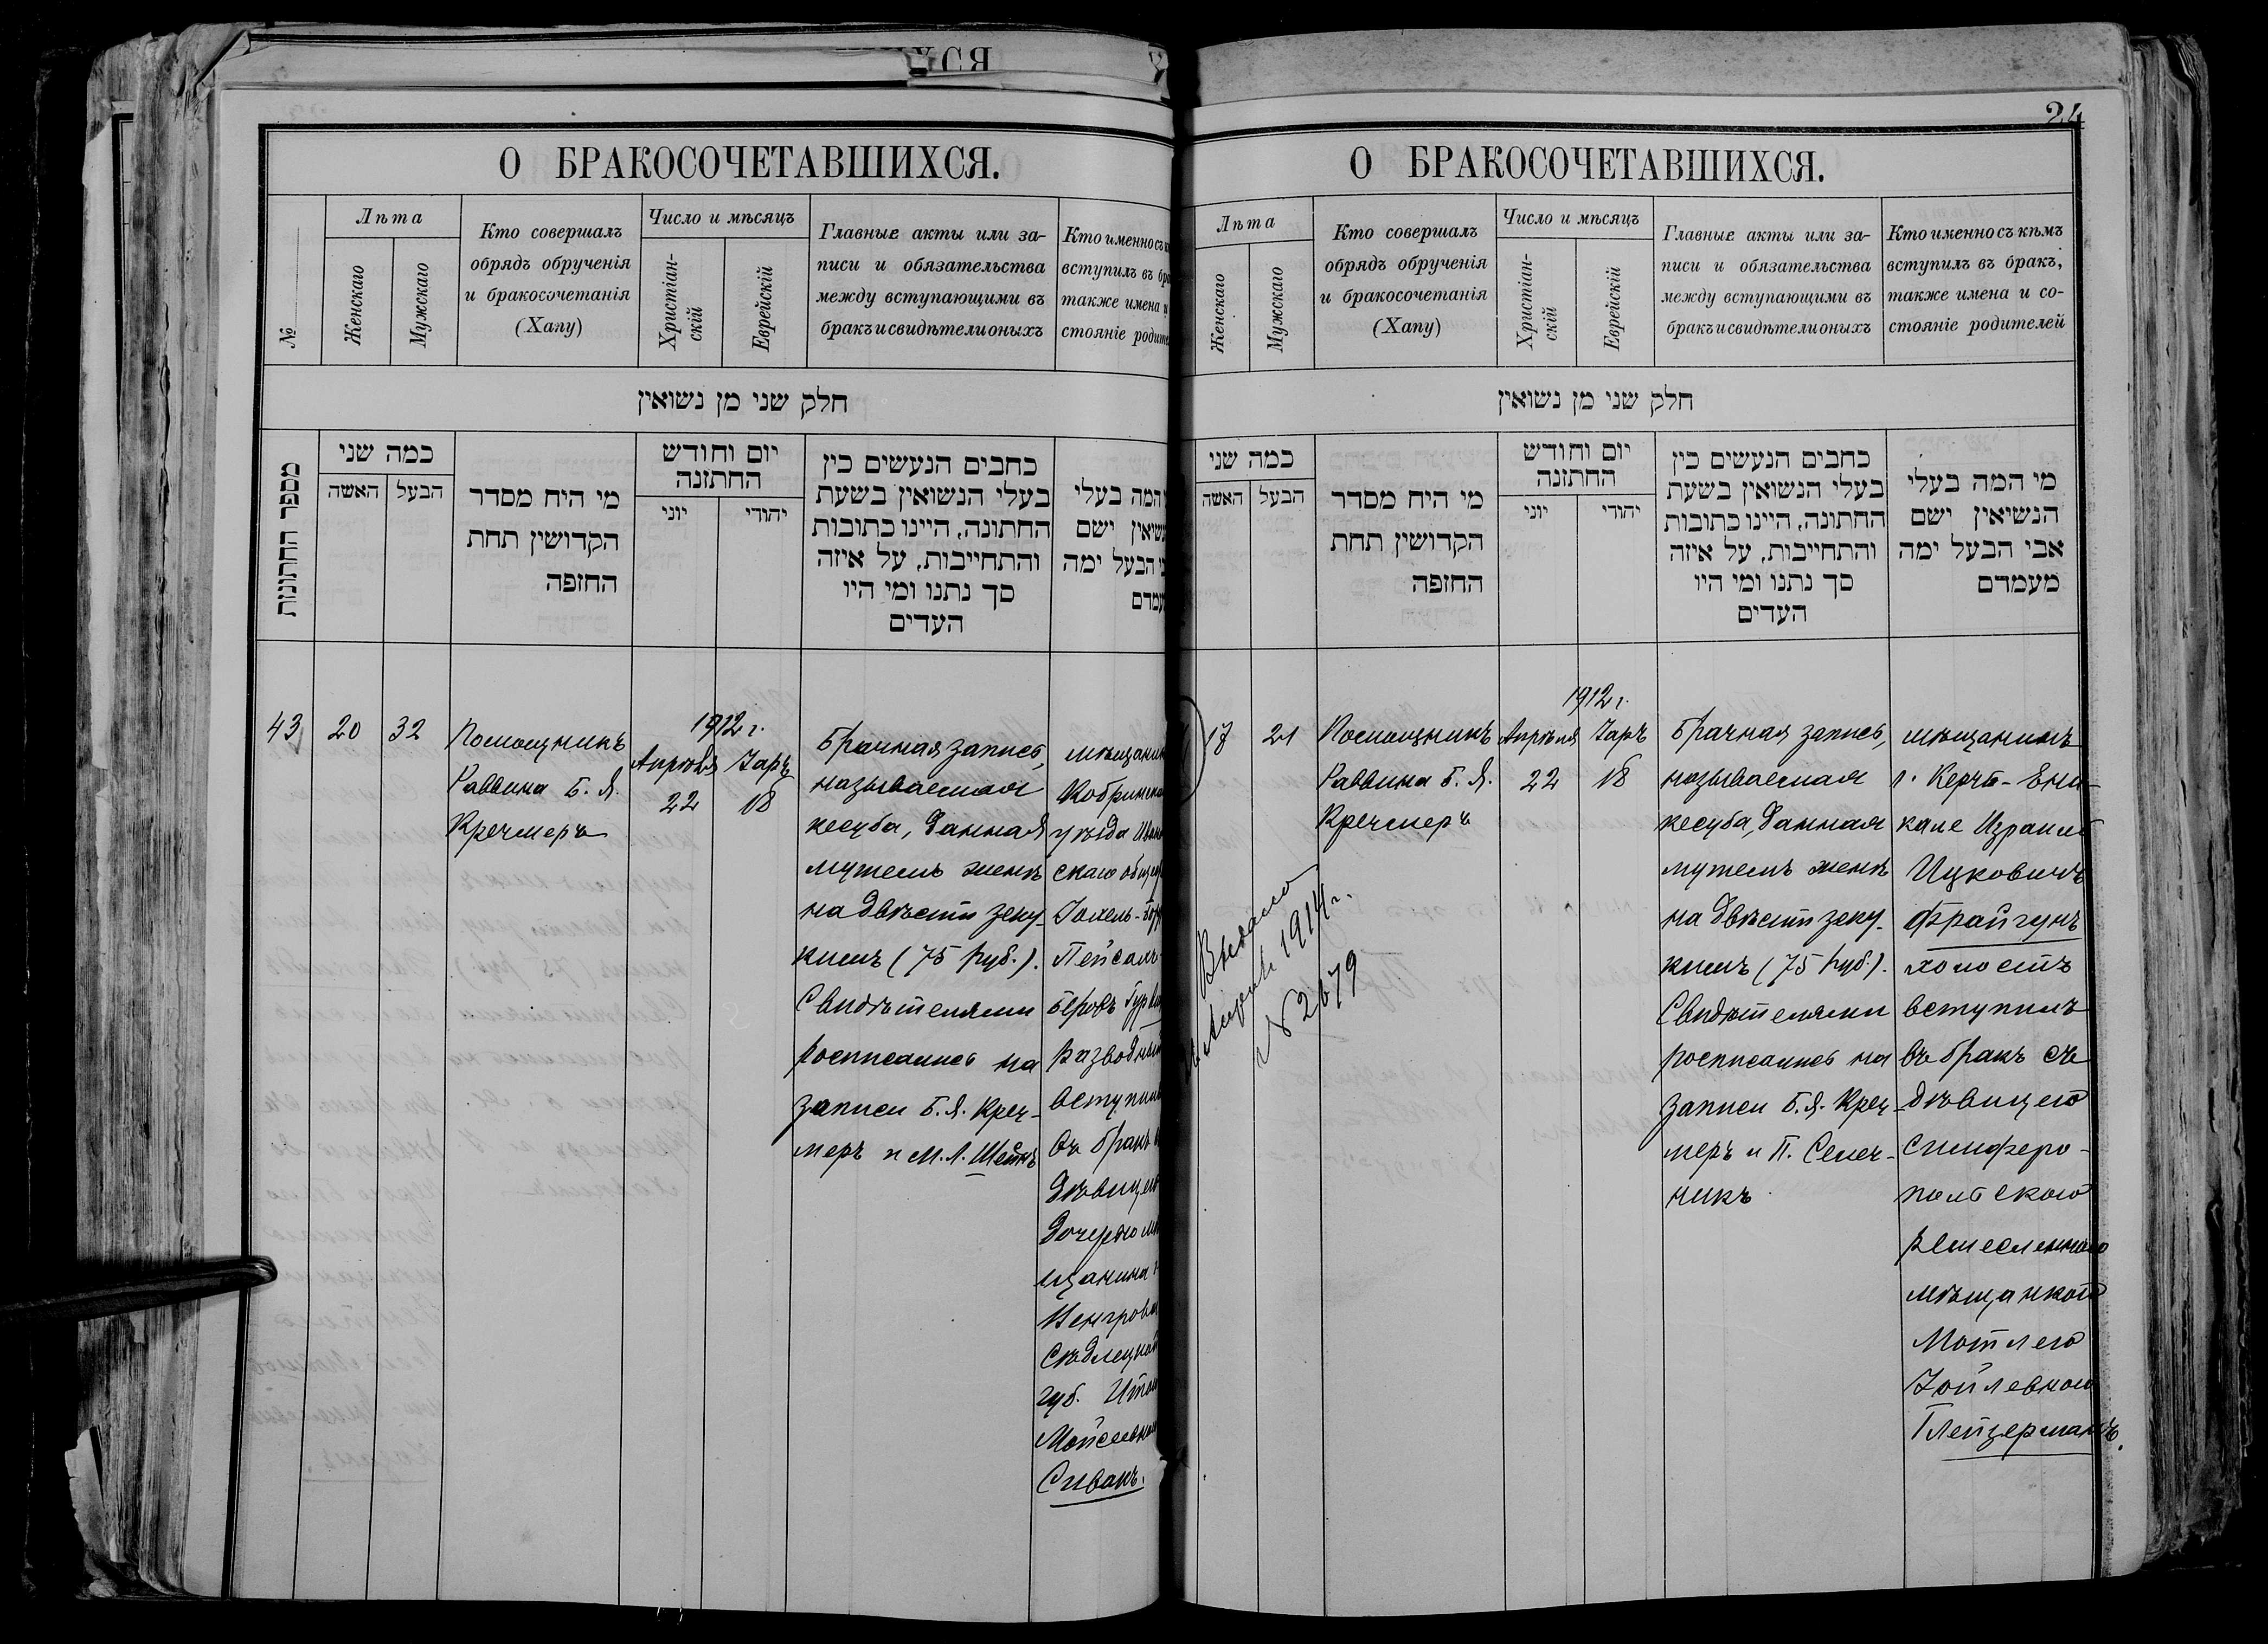 24
О БРАКОСОЧЕТАВШИХСЯ.
№
Лѣта
Женскаго
Мужскаго
Кто совершалъ
обрядъ обрученія
и бракосочетанія
(Хапу)
Число и мѣсяцъ
Христіан-
скій
Еврейскій
Главные акты или за-
писи и обязательства
между вступающими въ
бракъ и свидѣтели оныхъ
Кто именно съ
вступилъ въ
также имена
стояніе
חלק שני מן נשואין
מספר החתונות
כמה שני
האשה
הבעל
מי היח מסדר
הקדושין תחת
החזפה
יום וחודש
החתזנה
יוני
יהודי
כחבים הנעשים כין
בעלי הנשואין בשעת
החתונה, היינו כתובות
והתחייבות, על איזה
סך נתנו ומי היו
העדים
המה בעלי
ישם
הבעל ימה
43
20
32
Помощникъ
Раввина Б. Я.
Кречмеръ
1912 г.
Апрѣля
22
Іаръ
18
Брачная запись,
называемая
кесуба, данная
мужемъ женѣ
на двѣсти зеку-
кимъ (75 руб.).
Свидѣтелями
росписались на
записи Б. Я. Креч-
меръ и М. Л. Шейнъ
уѣзда
скаго
Гомель-
Пейсахъ-
Беровъ
вступилъ
въ бракъ
дочерью
щанина
губ.
Сивакъ.
О БРАКОСОЧЕТАВШИХСЯ.
Лѣта
Женскаго
Мужскаго
Кто совершалъ
обрядъ обрученія
и бракосочетанія
(Хапу)
Число и мѣсяцъ
Христіан-
скій
Еврейскій
Главные акты или за-
писи и обязательства
между вступающими въ
бракъ и свидѣтели оныхъ
Кто именно съ кѣмъ
вступилъ въ бракъ,
также имена и со-
стояніе родителей
חלק שני מן נשואין
כמה שני
האשה
הבעל
מי היח מסדר
הקדושין תחת
החזפה
יום וחודש
החתזנה
יוני
יהודי
כחבים הנעשים כין
בעלי הנשואין בשעת
החתונה, היינו כתובות
והתחייבות, על איזה
סך נתנו ומי היו
העדים
מי המה בעלי
הנשיאין ישם
אבי הבעל ימה
מעמדם
21
Помощникъ
Раввина Б. Я.
Кречмеръ
1912 г.
Апрѣля
22
Іаръ
18
Брачная запись,
называемая
кесуба, данная
мужемъ женѣ
на двѣсти зеку-
кимъ (75 руб.).
Свидѣтелями
росписались на
записи Б. Я. Креч-
меръ и П. Семеч-
никъ
мѣщанинъ
г. Керчь-Ени-
кале Израиль
Ицковичъ
Фрайгунъ
холостъ
вступилъ
въ бракъ съ
дѣвицею
симферо-
польскою
ремесленною
мѣщанкою
Мотлею
Іойлевною
Глейзерманъ.
Выдано
1914 г.
№ 2679